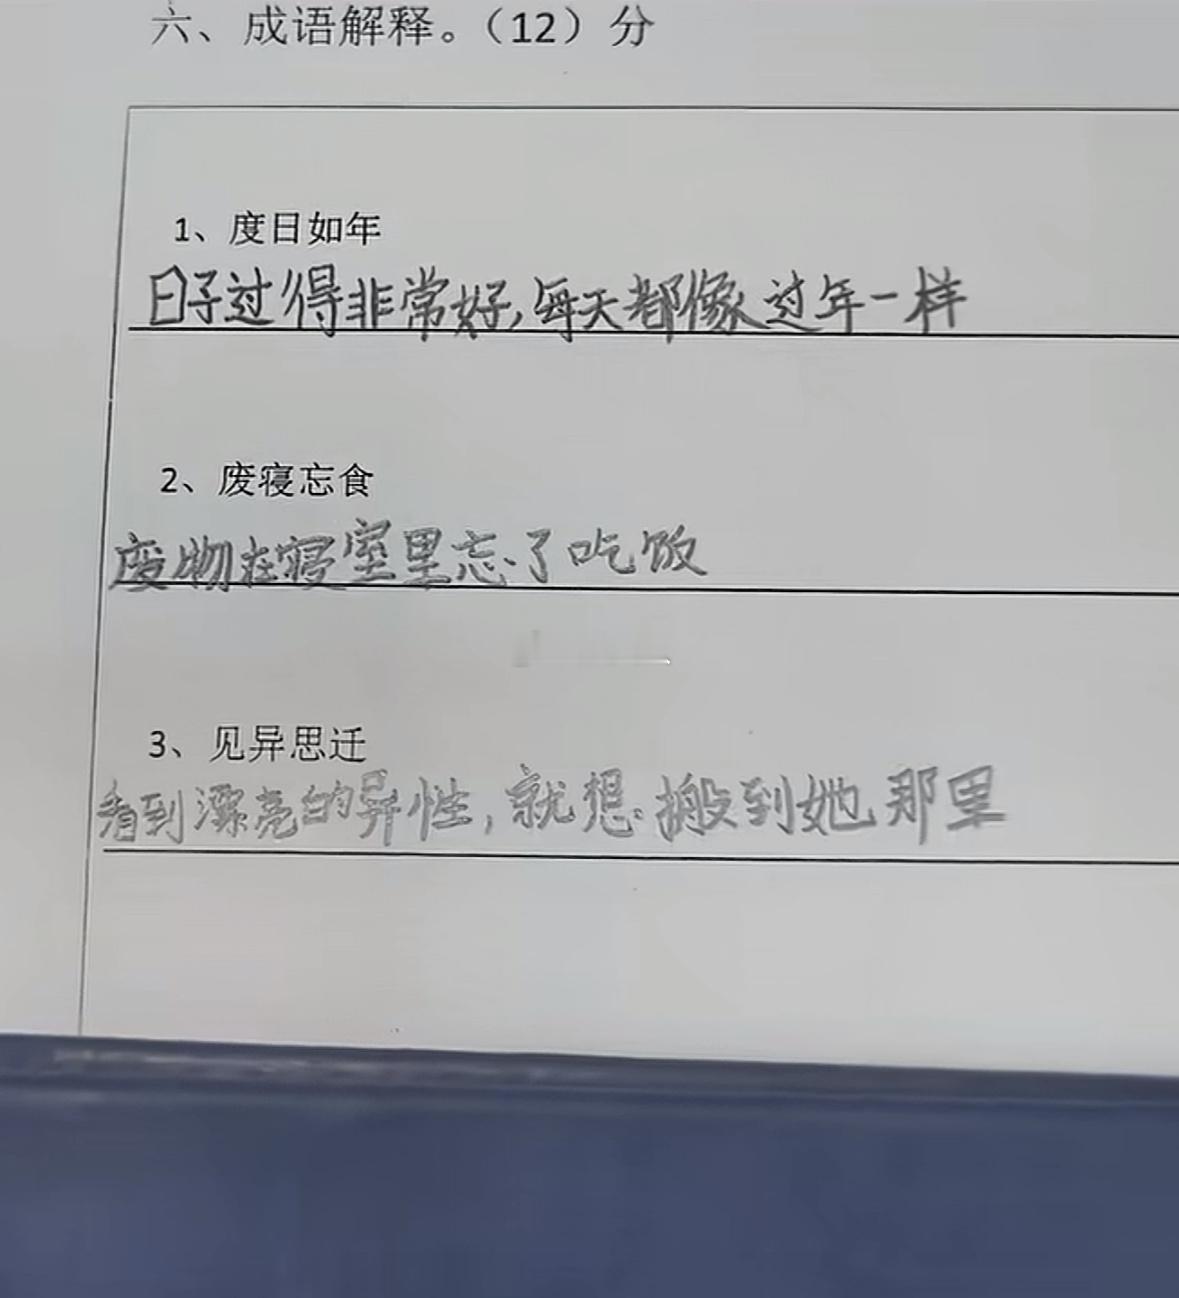 六、成语解释。（12）分
1、度日如年
日子过得非常好,每天都像过年一样
2、废寝忘食
废物在寝室里忘了吃饭
3、见异思迁
看到漂亮的异性,就想搬到她那里